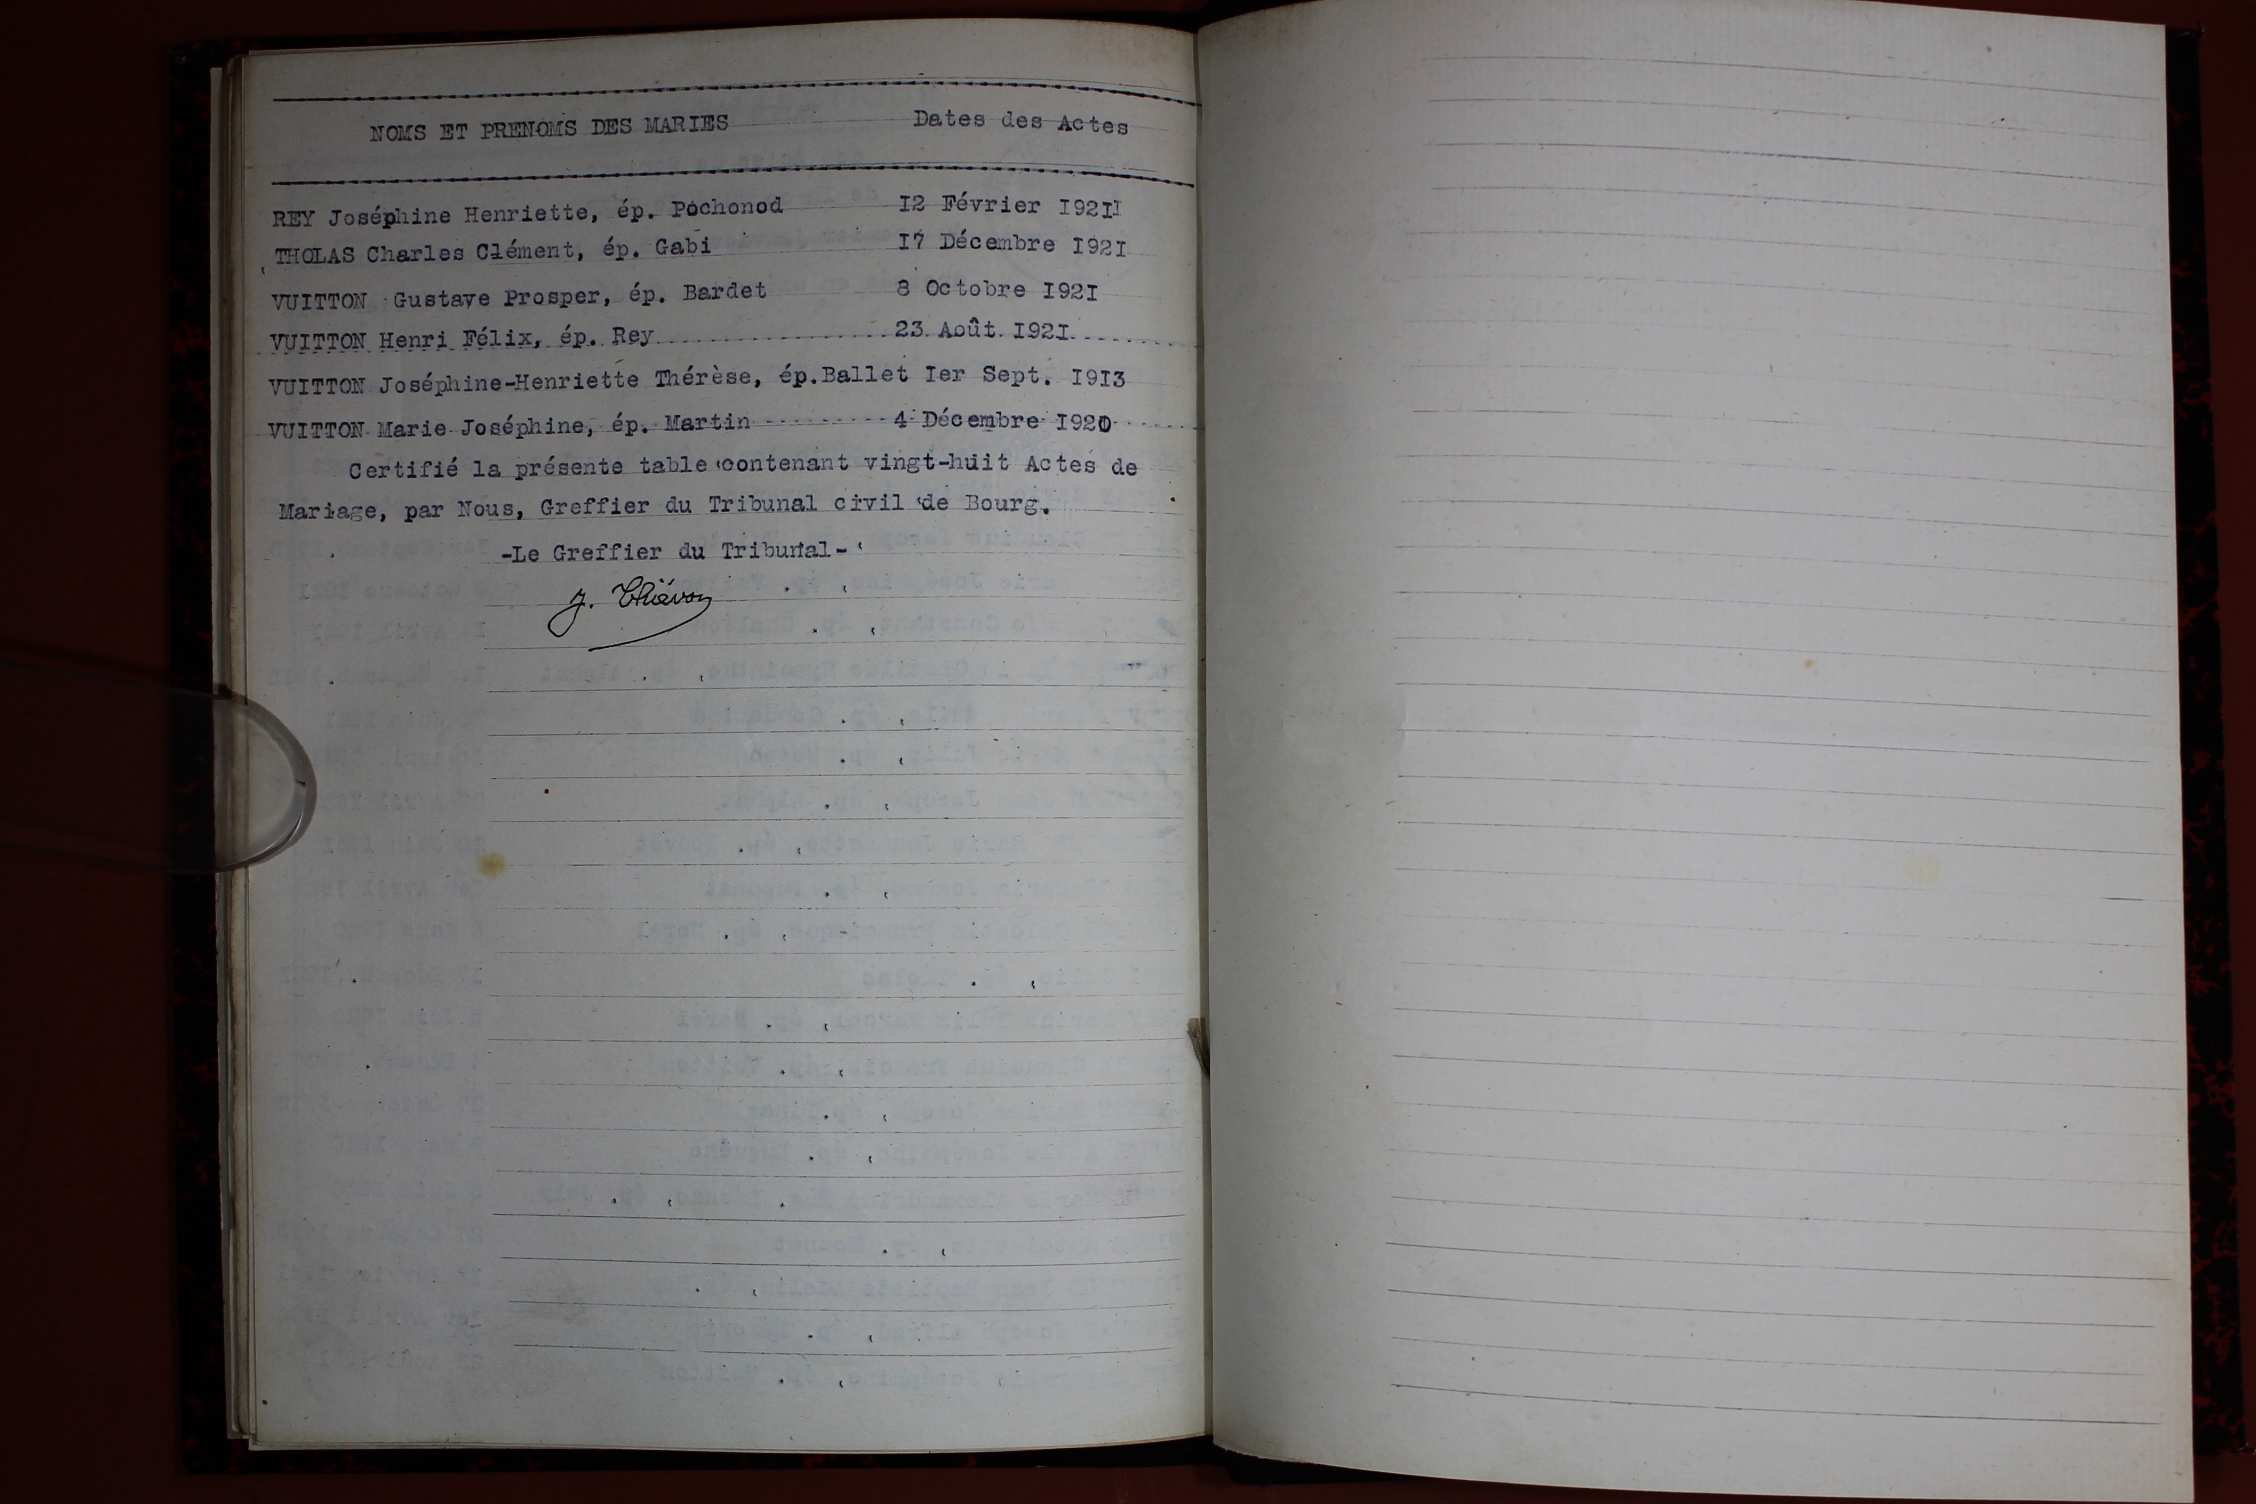 NOMS ET PRENOMS DES MARIES Dates des Actes
REY Joséphine Henriette, ép. Pochonod 12 Février 1921
THOLAS Charles Clément, ép. Gabi 17 Décembre 1921
VUITTON Gustave Prosper, ép. Bardet 8 Octobre 1921
VUITTON Henri Félix, ép. Rey 23 Août 1921
VUITTON Joséphine-Henriette Thérèse, ép.Ballet Ier Sept. 1913
VUITTON Marie Joséphine, ép. Martin 4 Décembre 1920
Certifié la présente table contenant vingt-huit Actes de
Mariage, par Nous, Greffier du Tribunal civil de Bourg.
-Le Greffier du Tribunal-